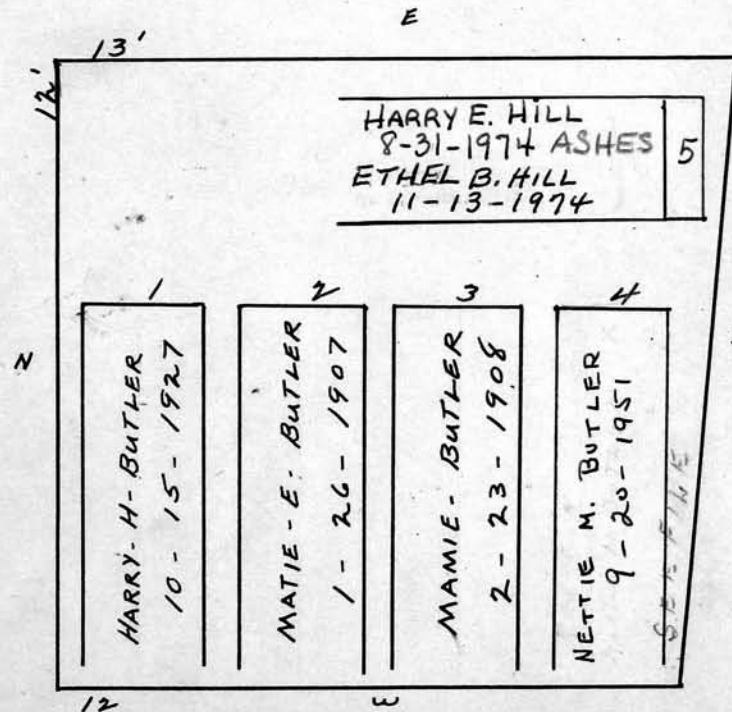 E
13'
12'
HARRY E. HILL
8-31-1974 ASHES
ETHEL B. HILL
11-13-1974
5
1
2
3
4
N
HARRY-H-BUTLER
10-15-1927
MATIE-E-BUTLER
1-26-1907
MAMIE-BUTLER
2-23-1908
NETTIE M. BUTLER
9-20-1951
SEE FILE
12
W